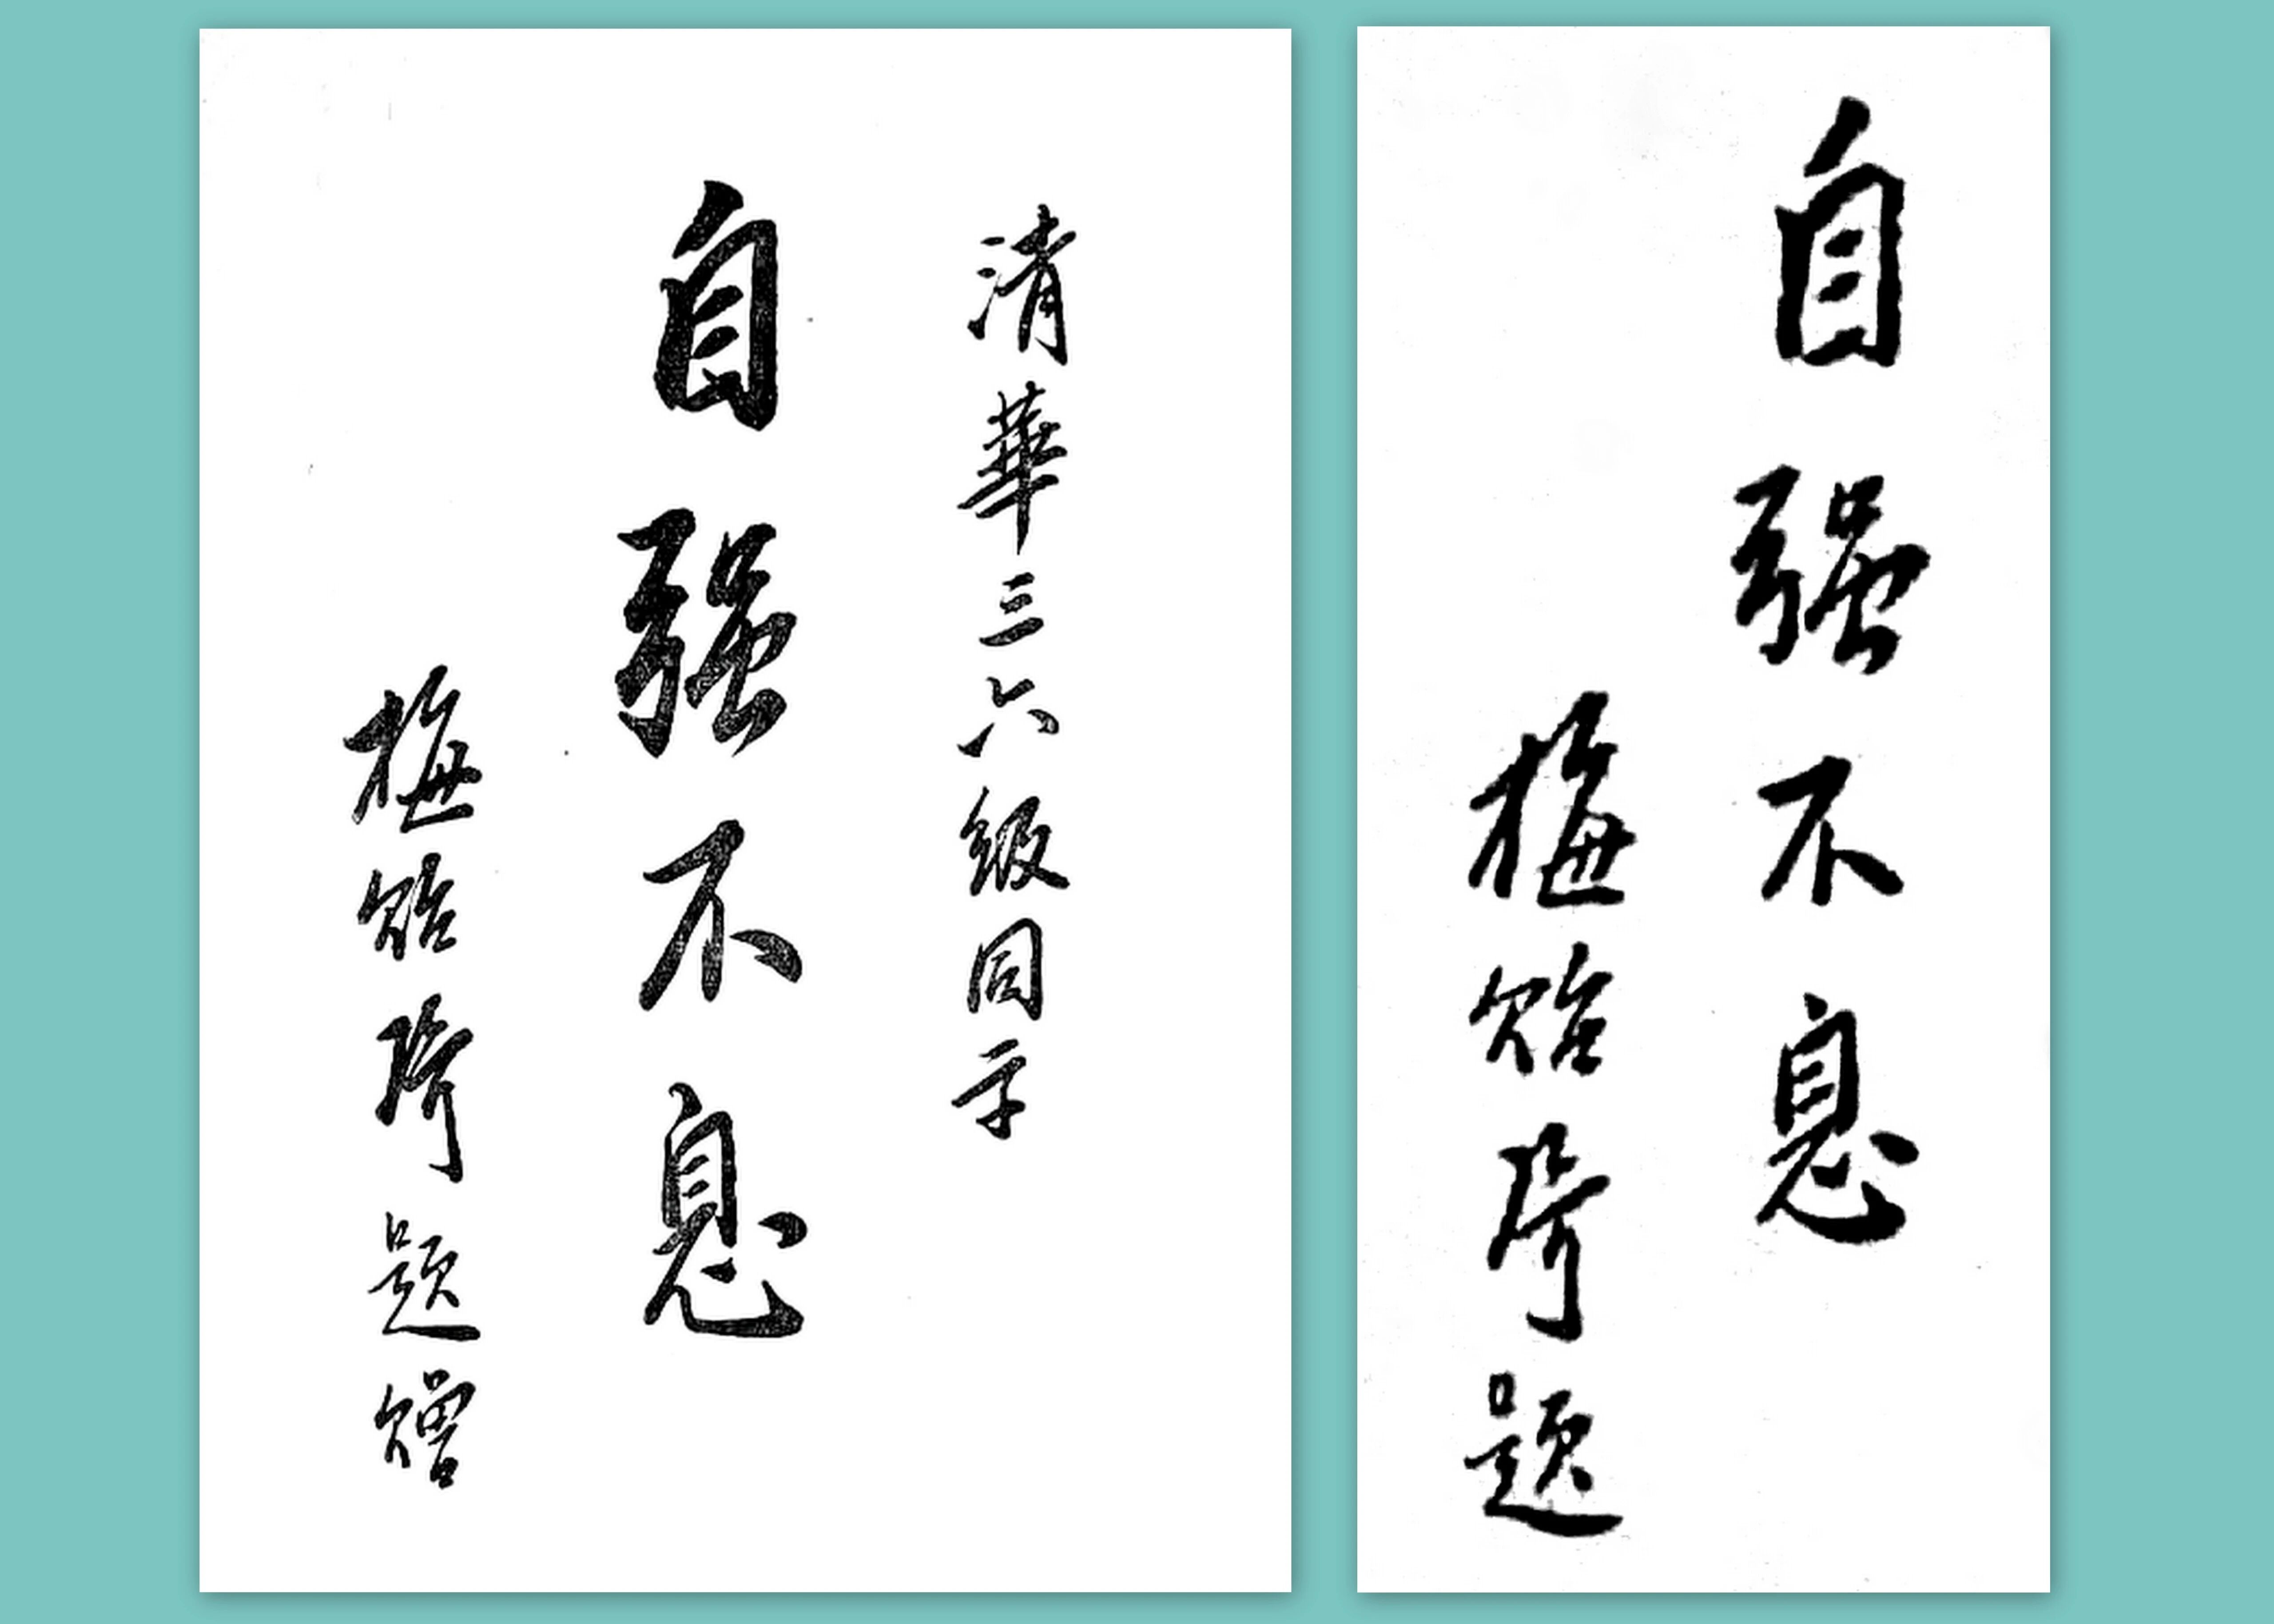 清華三六級同子
自强不息
梅貽琦題贈
自强不息
梅貽琦題